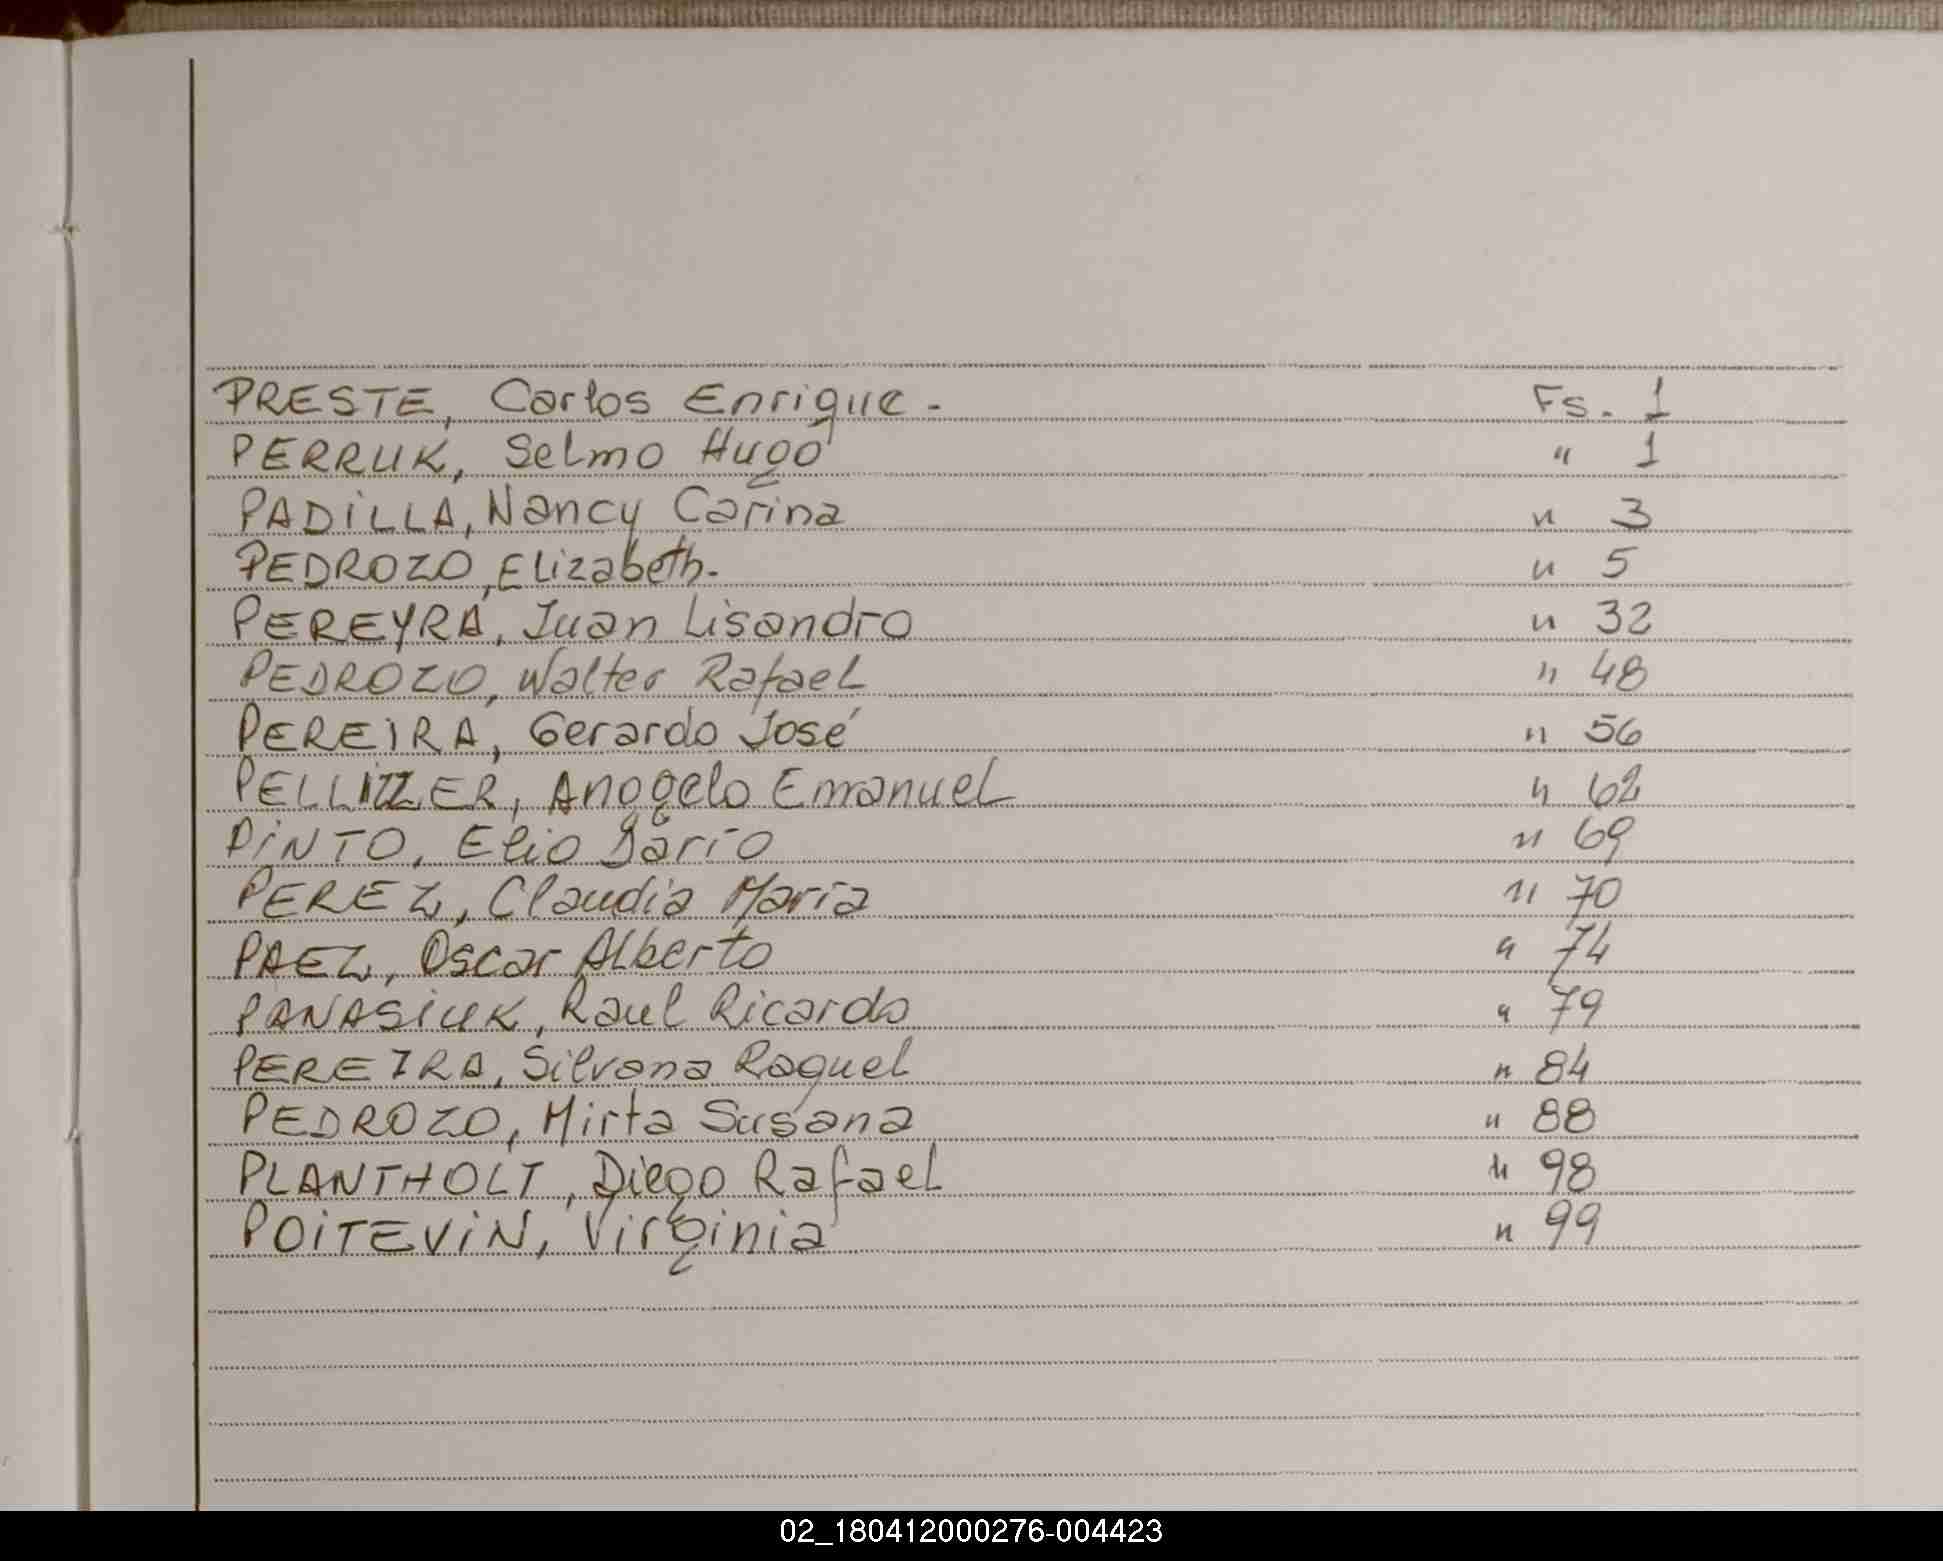 PRESTE, Carlos Enrique - Fs. 1
PERRUK, Selmo Hugo " 1
PADiLLA, Nancy Carina " 3
PEDROZO, Elizabeth. " 5
PEREYRA, Juan Lisandro " 32
PEDROZO, Walter Rafael " 48
PEREIRA, Gerardo José " 56
PELLIZZER, Anggelo Emanuel " 62
PiNTO, Elio Dario " 69
PEREZ, Claudia Maria " 70
PAEZ, Oscar Alberto " 74
PANASiUK, Raul Ricardo " 79
PEREIRA, Silvana Raquel " 84
PEDROZO, Mirta Susana " 88
PLANTHOLT, Diego Rafael " 98
POiTEViN, Virginia " 99
02_180412000276-004423